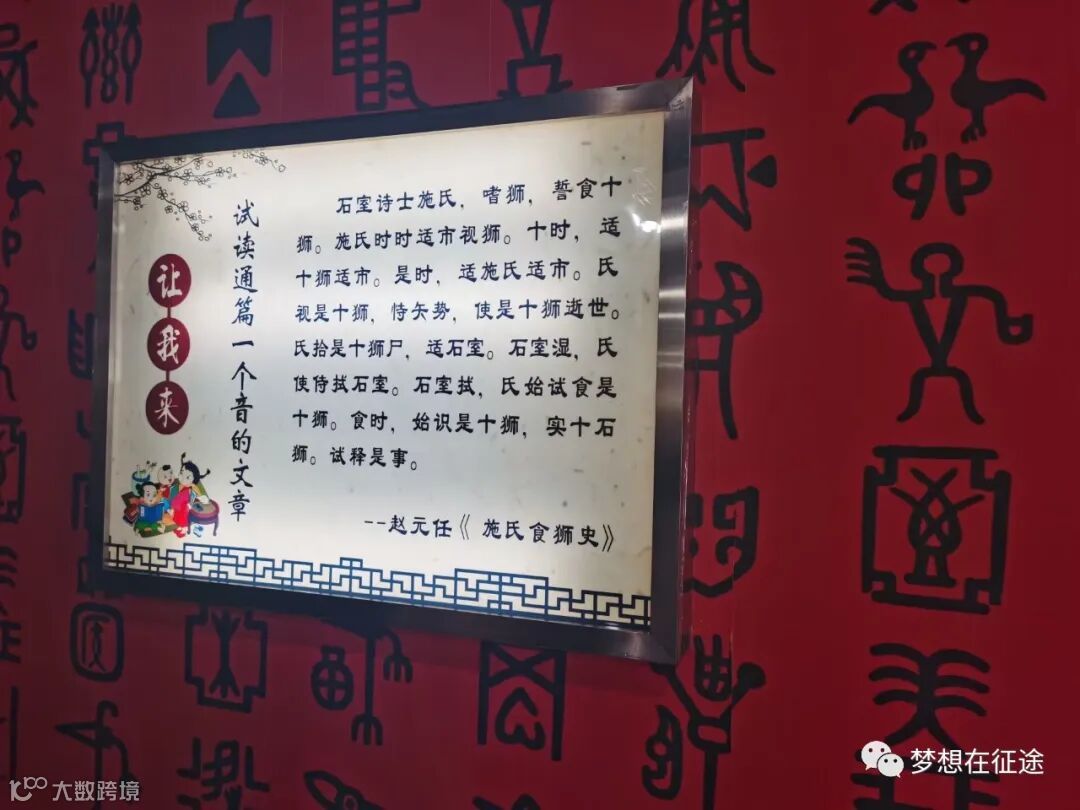 让我来
试读通篇一个音的文章
石室诗士施氏，嗜狮，誓食十
狮。施氏时时适市视狮。十时，适
十狮适市。是时，适施氏适市。氏
视是十狮，恃矢势，使是十狮逝世。
氏拾是十狮尸，适石室。石室湿，氏
使侍拭石室。石室拭，氏始试食是
十狮。食时，始识是十狮，实十石
狮。试释是事。
--赵元任《施氏食狮史》
梦想在征途
大数跨境